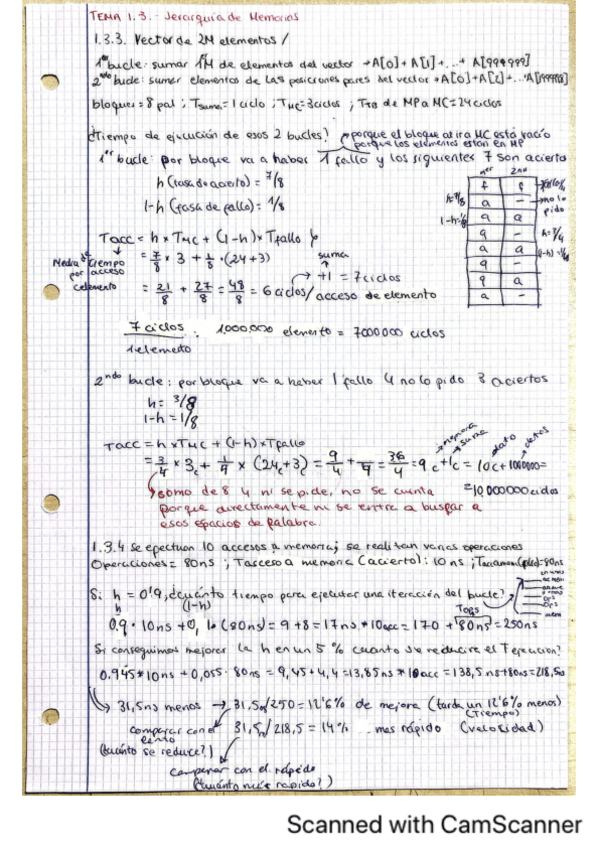 TEMA 1.3.- Jerarquía de Memorias
1.3.3. Vector de 2M elementos /
1er bucle: sumar 1M de elementos del vector → A[0] + A[1] + ... + A[999999]
2ndo bucle: sumar elementos de las posiciones pares del vector → A[0]+A[2]+...
bloques = 8 pal ; Tsuma = 1 ciclo ; TMC = 3 ciclos ; TTB de MP a MC = 24 ciclos
¿Tiempo de ejecución de esos 2 bucles?
porque el bloque at ira MC está vacío
porque los elementos estan en MP
1er bucle: por bloque va a haber 1 fallo y los siguientes 7 son acierto
h (tasa de acierto) = 7/8
1-h (tasa de fallo) = 1/8
1er 2nd
f f
a -
a a
a -
a a
a -
a a
a -
h=7/8
1-h=1/8
fallo
no lo pido
h=3/4
Tacc = h × TMC + (1-h) × Tfallo
Media de tiempo por acceso elemento
= 7/8 × 3 + 1/8 · (24+3)
suma
= 21/8 + 27/8 = 48/8 = 6 ciclos/acceso de elemento
+1 = 7 ciclos
7 ciclos / 1 elemento · 1000,000 elemento = 7000000 ciclos
2ndo bucle: por bloque va a haber 1 fallo 4 no lo pido 3 aciertos
h = 3/8
1-h = 1/8
Tacc = h × TMC + (1-h) × Tfallo
memoria suma dato
= 3/4 × 3c + 1/4 × (24c+3c) = 9/4 + = 36/4 = 9c + 1c = 10c + 1000000 =
= 10000000 ciclos
como de 8 4 ni se pide, no se cuenta
porque directamente ni se entra a buspar a
esos espacios de palabra.
1.3.4 Se efectuan 10 accesos a memoria; se realizan varias operaciones
Operaciones = 80ns ; Tacceso a memoria (acierto): 10 ns ; = 80ns
Si h = 0'9, ¿cuánto tiempo para ejecutar una iteración del bucle?
h (1-h) Tops
0.9 · 10ns + 0,1 · (80ns) = 9 + 8 = 17ns * 10acc = 170 + 80ns = 250ns
Si conseguimos mejorar la h en un 5% cuanto se reducire el Tejecucion?
0.945*10ns + 0,055 · 80ns = 9,45 + 4,4 = 13,85ns * 10acc = 138,5ns + 80ns = 218,5ns
31,5ns menos → 31,5/250 = 12'6% de mejora (tarda un 12'6% menos)
(Tiempo)
comparar con el lento
(cuánto se reduce?)
31,5/218,5 = 14% mas rápido (velocidad)
comparar con el rápido
(cuánto más rapido?)
Scanned with CamScanner